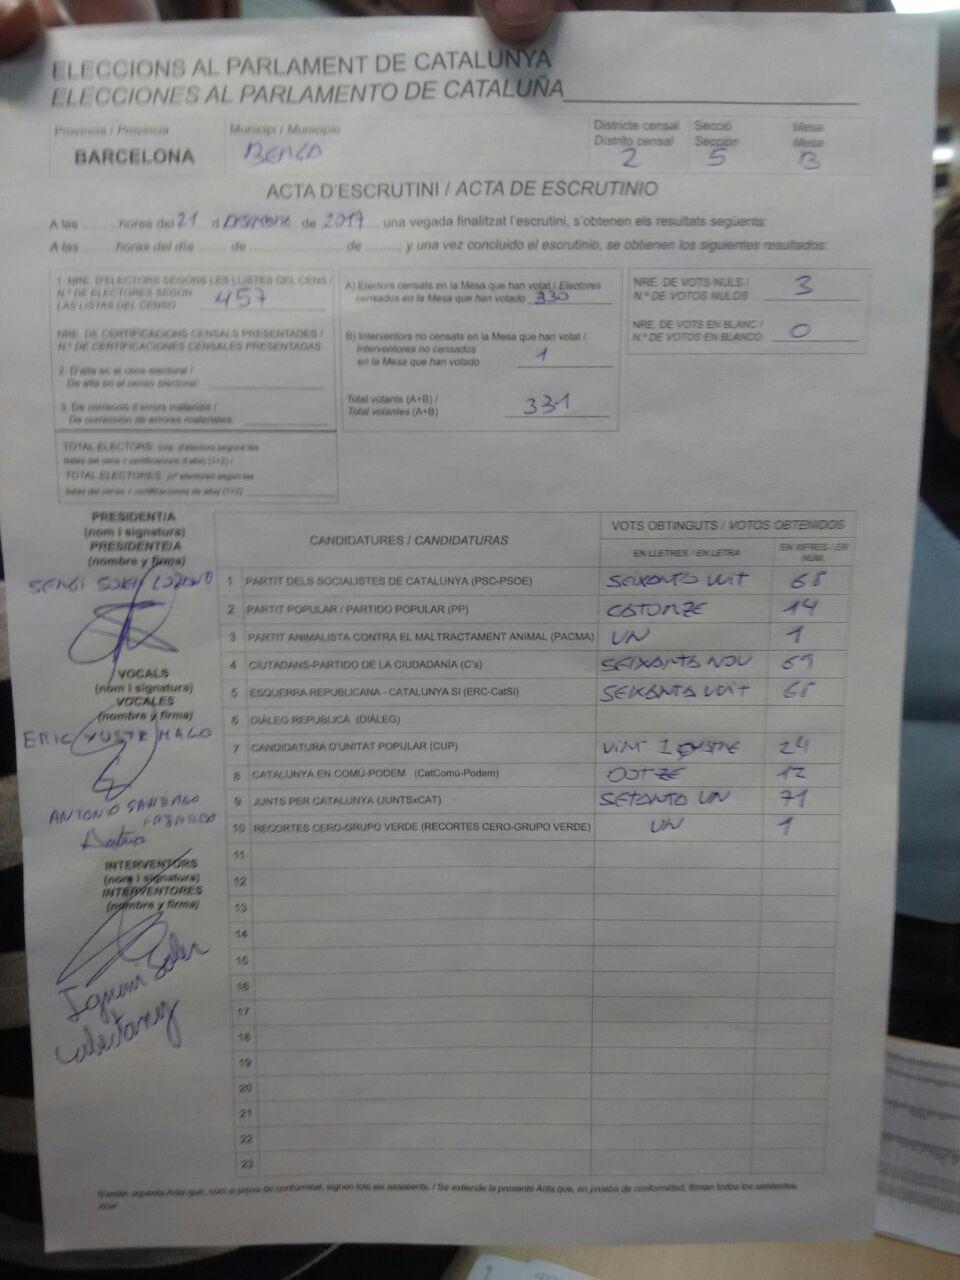 ELECCIONS AL PARLAMENT DE CATALUNYA
ELECCIONES AL PARLAMENTO DE CATALUÑA
Provincia / Provincia
BARCELONA
Municipi / Municipio
BERGA
Districte censal
Distrito censal
2
Secció
Sección
5
Mesa
Mesa
B
ACTA D'ESCRUTINI / ACTA DE ESCRUTINIO
A les ......... hores del 21 d DESEMBRE de 2017, una vegada finalitzat l'escrutini, s'obtenen els resultats següents:
A las ......... horas del día ........ de ........................ de ........., y una vez concluido el escrutinio, se obtienen los siguientes resultados:
1. NRE. D'ELECTORS SEGONS LES LLISTES DEL CENS /
N.º DE ELECTORES SEGÚN
LAS LISTAS DEL CENSO 457
NRE. DE CERTIFICACIONS CENSALS PRESENTADES /
N.º DE CERTIFICACIONES CENSALES PRESENTADAS
2. D'alta en el cens electoral /
De alta en el censo electoral:
3. De correcció d'errors materials /
De corrección de errores materiales:
TOTAL ELECTORS: nre. d'electors segons les
llistes del cens + certificacions d'alta) (1+2) /
TOTAL ELECTORES (nº electores según las
listas del censo + certificaciones de alta) (1+2)
A) Electors censats en la Mesa que han votat / Electores
censados en la Mesa que han votado 330
B) Interventors no censats en la Mesa que han votat /
Interventores no censados
en la Mesa que han votado 1
Total votants (A+B) /
Total votantes (A+B) 331
NRE. DE VOTS NULS /
N.º DE VOTOS NULOS 3
NRE. DE VOTS EN BLANC /
N.º DE VOTOS EN BLANCO 0
PRESIDENT/A
(nom i signatura)
PRESIDENTE/A
(nombre y firma)
SERGI
VOCALS
(nom i signatura)
VOCALES
(nombre y firma)
ERIC YUSTE MALO
ANTONIO SANTIAGO
FAJARDO
INTERVENTORS
(nom i signatura)
INTERVENTORES
(nombre y firma)
Soler
CANDIDATURES / CANDIDATURAS
VOTS OBTINGUTS / VOTOS OBTENIDOS
EN LLETRES / EN LETRA
EN XIFRES / EN NÚM.
1 PARTIT DELS SOCIALISTES DE CATALUNYA (PSC-PSOE) SEIXANTA VUIT 68
2 PARTIT POPULAR / PARTIDO POPULAR (PP) CATORZE 14
3 PARTIT ANIMALISTA CONTRA EL MALTRACTAMENT ANIMAL (PACMA) UN 1
4 CIUTADANS-PARTIDO DE LA CIUDADANÍA (C's) SEIXANTA NOU 69
5 ESQUERRA REPUBLICANA - CATALUNYA SI (ERC-CatSí) SEIXANTA VUIT 68
6 DIÀLEG REPUBLICÀ (DIÀLEG)
7 CANDIDATURA D'UNITAT POPULAR (CUP) VINT I QUATRE 24
8 CATALUNYA EN COMÚ-PODEM (CatComú-Podem) DOTZE 12
9 JUNTS PER CATALUNYA (JUNTSxCAT) SETANTA UN 71
10 RECORTES CERO-GRUPO VERDE (RECORTES CERO-GRUPO VERDE) UN 1
11
12
13
14
15
16
17
18
19
20
21
22
23
S'estén aquesta Acta que, com a prova de conformitat, signen tots els assistents. / Se extiende la presente Acta que, en prueba de conformidad, firman todos los asistentes.